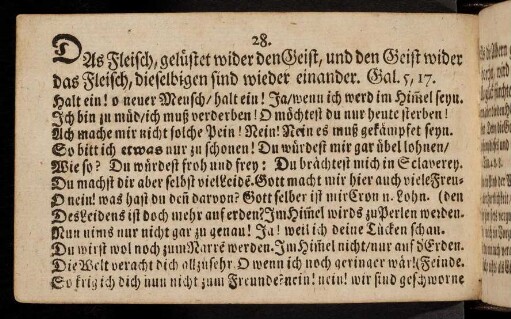 28.
DAs Fleisch, gelüstet wider den Geist, und den Geist wider
das Fleisch, dieselbigen sind wieder einander. Gal. 5, 17.
Halt ein! o neuer Mensch/ halt ein! Ja/ wenn ich werd im Him̃el seyn.
Ich bin zu müd/ ich muß verderben! O möchtest du nur heute sterben!
Ach mache mir nicht solche Pein! Nein! Nein es muß gekämpfet seyn.
So bitt ich etwas nur zu schonen! Du würdest mir gar übel lohnen/
Wie so? Du würdest froh und frey: Du brächtest mich in Sclaverey.
Du machst dir aber selbst viel Leidē. Gott macht mir hier auch viele Freu-
O nein! was hast du deñ darvon? Gott selber ist mir Cron u. Lohn. (den
Des Leidens ist doch mehr auf erden? Im Him̃el wirds zu Perlen werden.
Nun nims nur nicht gar zu genau! Ja! weil ich deine Tücken schau.
Du wirst wol noch zum Narrē werden. Im Him̃el nicht/ nur auf d'Erden.
Die Welt veracht dich allzusehr. O wenn ich noch geringer wär! (Feinde.
So krig ich dich nun nicht zum Freunde? nein! nein! wir sind geschworne